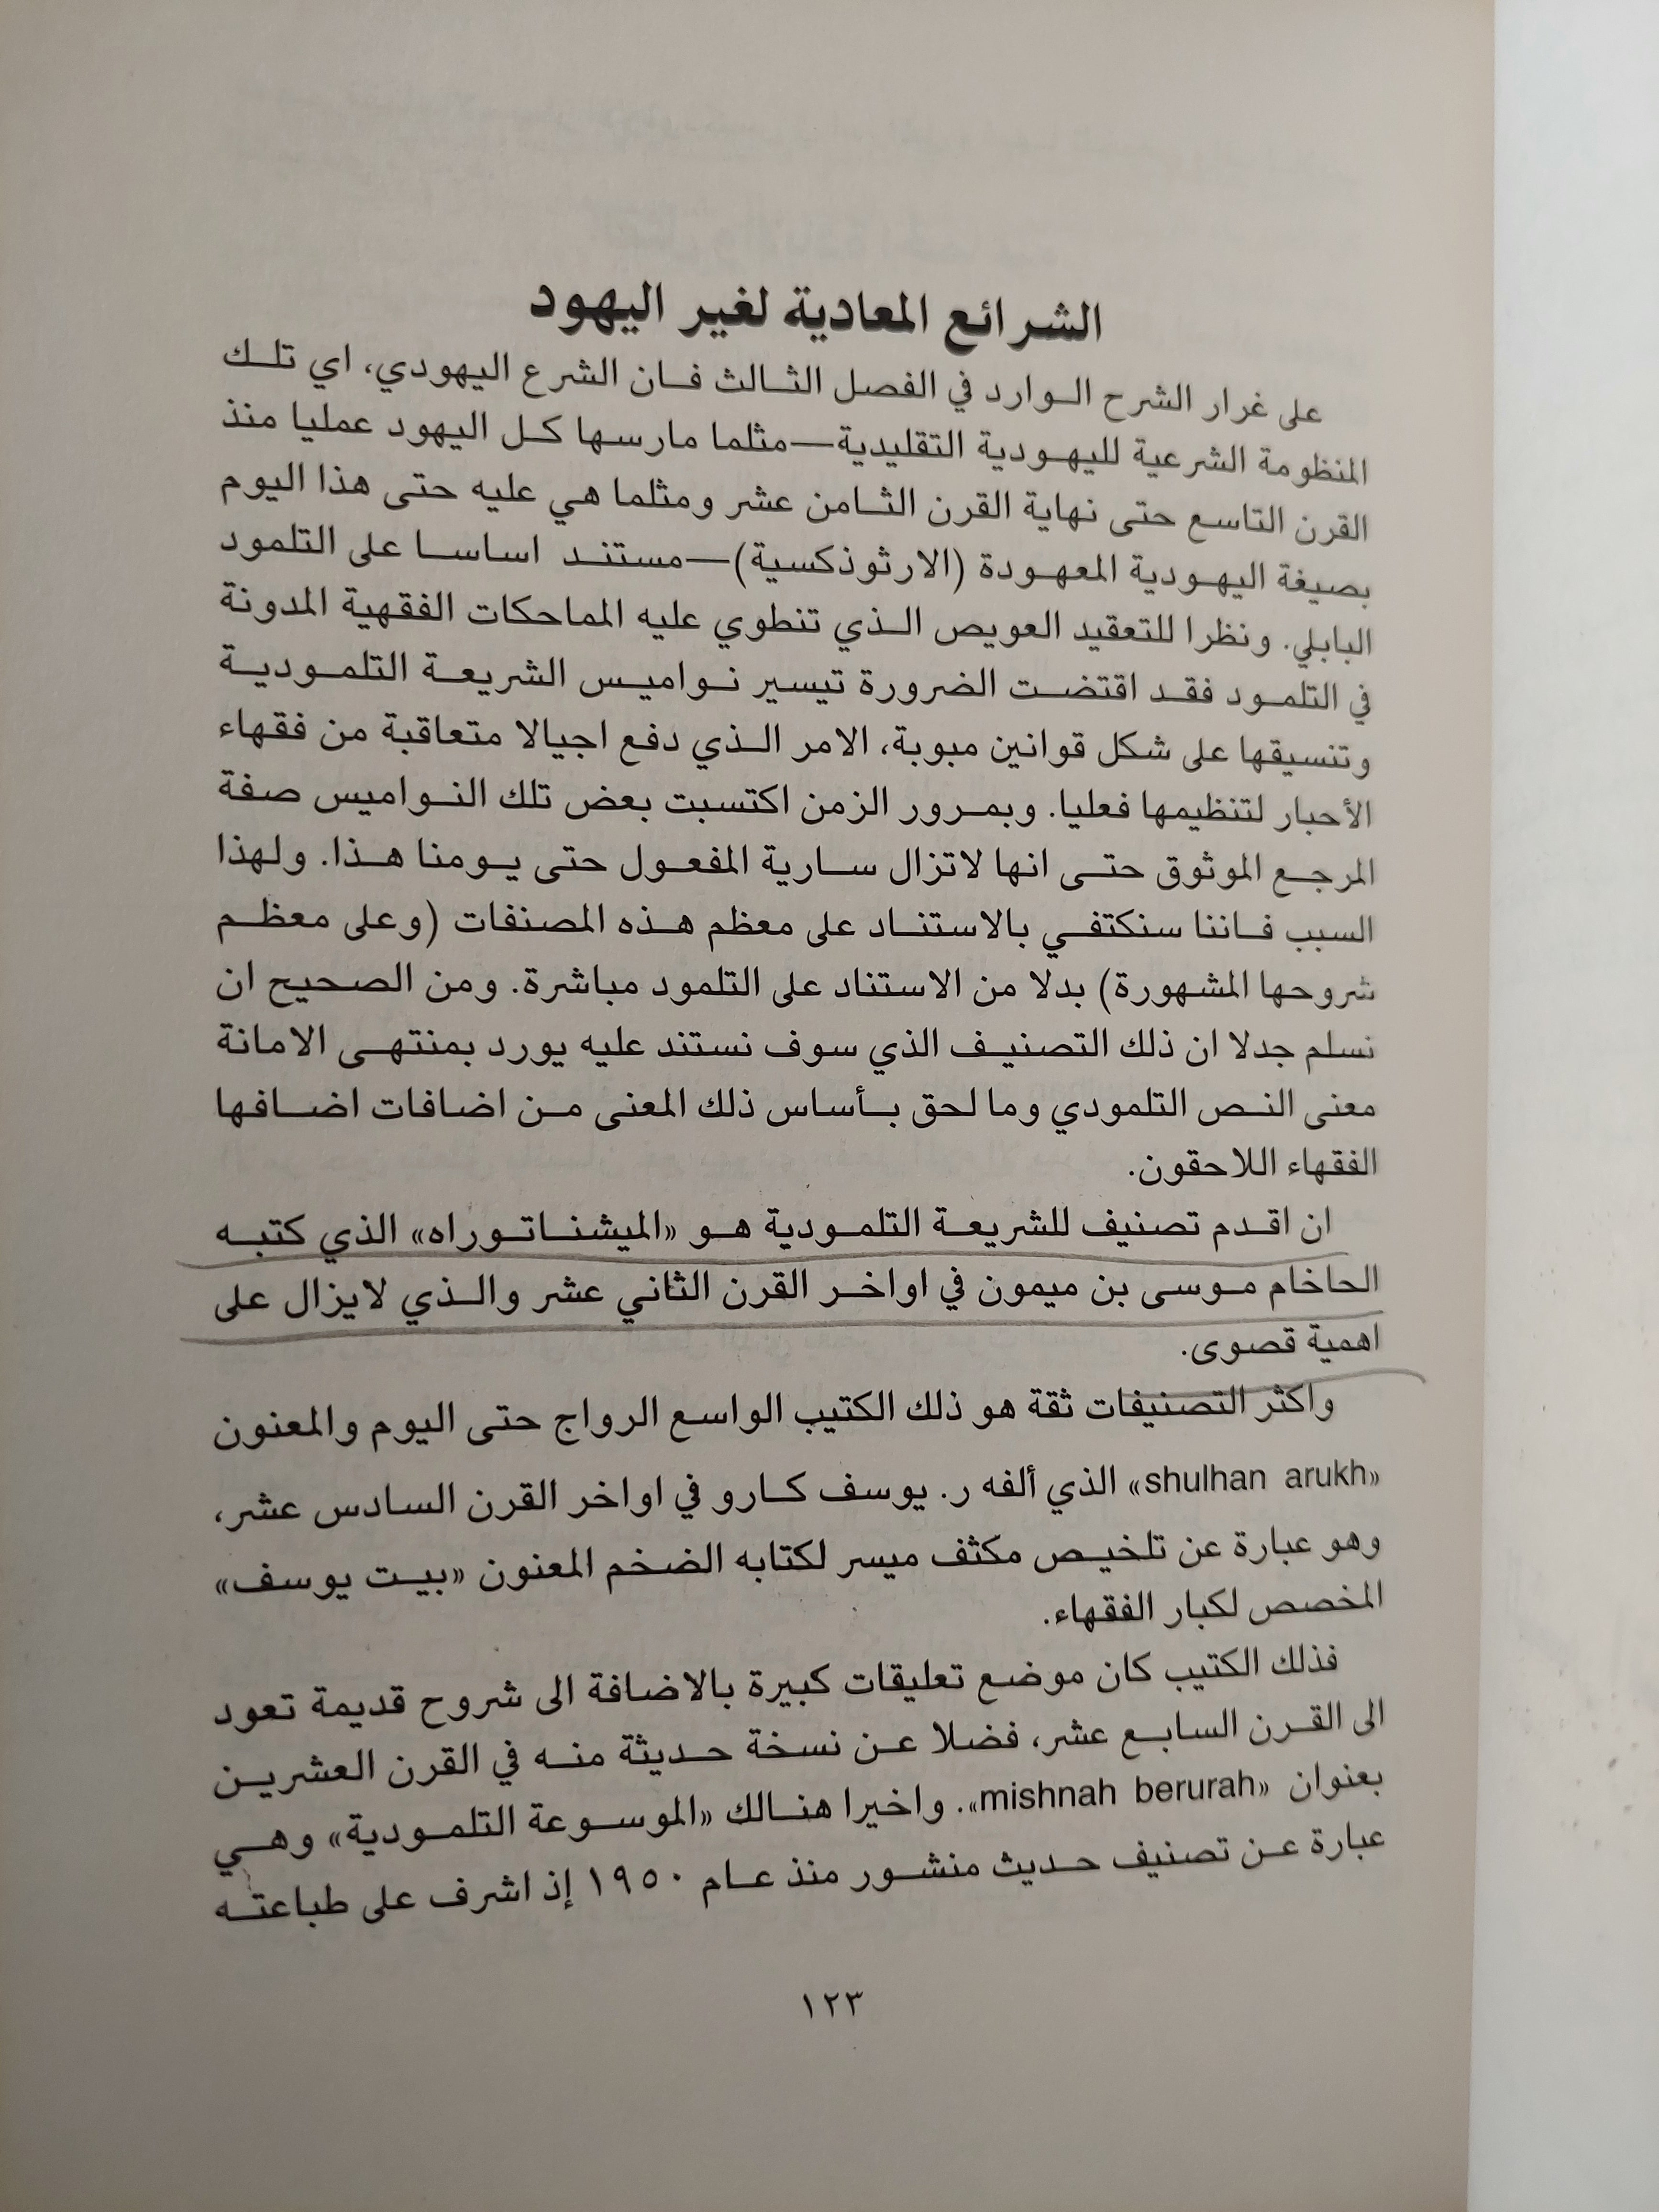 الشرائع المعادية لغير اليهود
على غرار الشرح الوارد في الفصل الثالث فان الشرع اليهودي، اي تلك
المنظومة الشرعية لليهودية التقليدية—مثلما مارسها كل اليهود عمليا منذ
القرن التاسع حتى نهاية القرن الثامن عشر ومثلما هي عليه حتى هذا اليوم
بصيغة اليهودية المعهودة (الارثوذكسية)—مستند اساسا على التلمود
البابلي. ونظرا للتعقيد العويص الذي تنطوي عليه المماحكات الفقهية المدونة
في التلمود فقد اقتضت الضرورة تيسير نواميس الشريعة التلمودية
وتنسيقها على شكل قوانين مبوبة، الامر الذي دفع اجيالا متعاقبة من فقهاء
الأحبار لتنظيمها فعليا. وبمرور الزمن اكتسبت بعض تلك النواميس صفة
المرجع الموثوق حتى انها لاتزال سارية المفعول حتى يومنا هذا. ولهذا
السبب فاننا سنكتفي بالاستناد على معظم هذه المصنفات (وعلى معظم
شروحها المشهورة) بدلا من الاستناد على التلمود مباشرة. ومن الصحيح ان
نسلم جدلا ان ذلك التصنيف الذي سوف نستند عليه يورد بمنتهى الامانة
معنى النص التلمودي وما لحق بأساس ذلك المعنى من اضافات اضافها
الفقهاء اللاحقون.
ان اقدم تصنيف للشريعة التلمودية هو «الميشناتوراه» الذي كتبه
الحاخام موسى بن ميمون في اواخر القرن الثاني عشر والذي لايزال على
اهمية قصوى.
واكثر التصنيفات ثقة هو ذلك الكتيب الواسع الرواج حتى اليوم والمعنون
«shulhan arukh» الذي ألفه ر. يوسف كارو في اواخر القرن السادس عشر،
وهو عبارة عن تلخيص مكثف ميسر لكتابه الضخم المعنون «بيت يوسف»
المخصص لكبار الفقهاء.
فذلك الكتيب كان موضع تعليقات كبيرة بالاضافة الى شروح قديمة تعود
الى القرن السابع عشر، فضلا عن نسخة حديثة منه في القرن العشرين
بعنوان «mishnah berurah». واخيرا هنالك «الموسوعة التلمودية» وهي
عبارة عن تصنيف حديث منشور منذ عام ١٩٥٠ إذ اشرف على طباعته
١٢٣